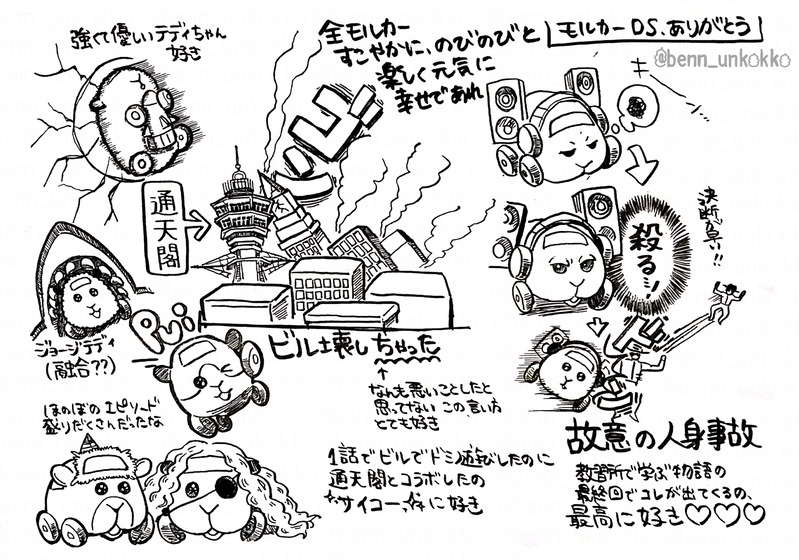 強くて優しいテディちゃん
好き
全モルカー
すこやかに、のびのびと
楽しく元気に
幸せであれ
モルカーDS、ありがとう
@benn_unkokko
通天閣
決断が早い!!
殺るッ!
ジョージテディ
(融合??)
PUI
ビル壊しちゃった
↑
なんも悪いことしたと
思ってない この言い方
とても好き
ほのぼのエピソード
盛りだくさんだったな
1話でビルでドミノ遊びしたのに
通天閣とコラボしたの
サイコーに好き
故意の人身事故
教習所で学ぶ物語の
最終回でコレが出てくるの、
最高に好き♡♡♡